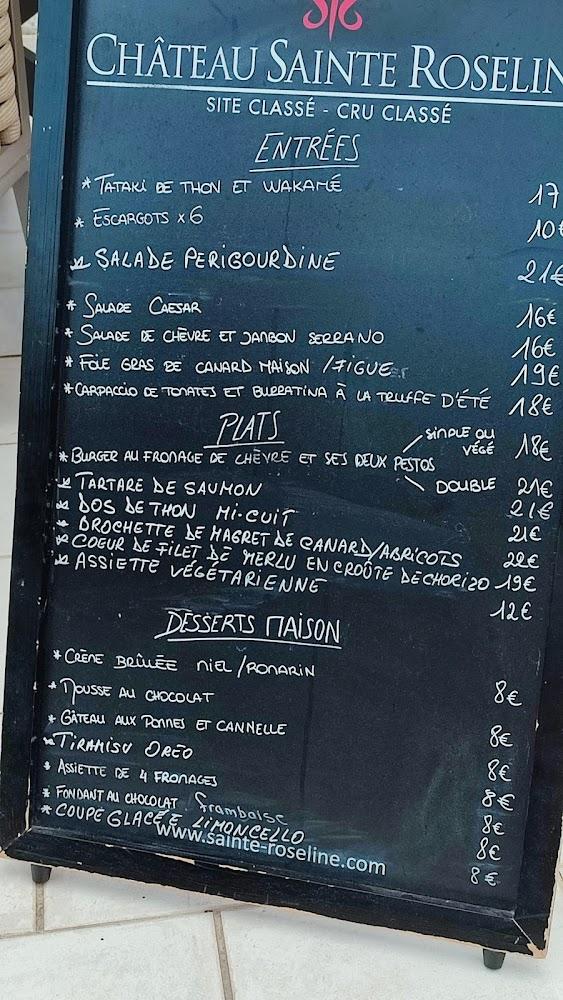 CHÂTEAU SAINTE ROSELIN
SITE CLASSÉ - CRU CLASSÉ
ENTRÉES
* TATAKI DE THON ET WAKAMÉ 17
* ESCARGOTS x 6 10€
* SALADE PERIGOURDINE 21€
* SALADE CAESAR 16€
* SALADE DE CHÈVRE ET JAMBON SERRANO 16€
* FOIE GRAS DE CANARD MAISON / FIGUES 19€
* CARPACCIO DE TOMATES ET BURRATINA À LA TRUFFE D'ÉTÉ 18€
PLATS
SIMPLE OU VÉGÉ 18€
* BURGER AU FROMAGE DE CHÈVRE ET SES DEUX PESTOS
DOUBLE 21€
* TARTARE DE SAUMON 21€
* DOS DE THON MI-CUIT 21€
* BROCHETTE DE MAGRET DE CANARD/ABRICOTS 22€
* COEUR DE FILET DE MERLU EN CROÛTE DE CHORIZO 19€
* ASSIETTE VÉGÉTARIENNE 12€
DESSERTS MAISON
* CRÈME BRÛLÉE MIEL / ROMARIN 8€
* MOUSSE AU CHOCOLAT 8€
* GÂTEAU AUX POMMES ET CANNELLE 8€
* TIRAMISU OREO 8€
* ASSIETTE DE 4 FROMAGES 8€
* FONDANT AU CHOCOLAT framboise 8€
* COUPE GLACÉE LIMONCELLO 8€
www.sainte-roseline.com